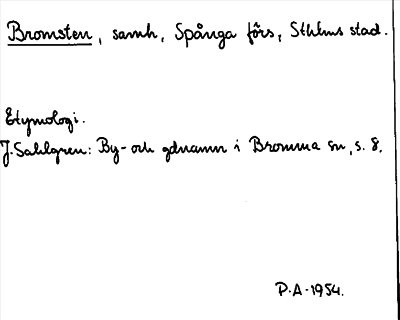 Bromsten, samh, Spånga förs, Sthlms stad.
Etymologi.
J. Sahlgren: By- och gdnamn i Bromma sn, s. 8.
P.A. 1954.